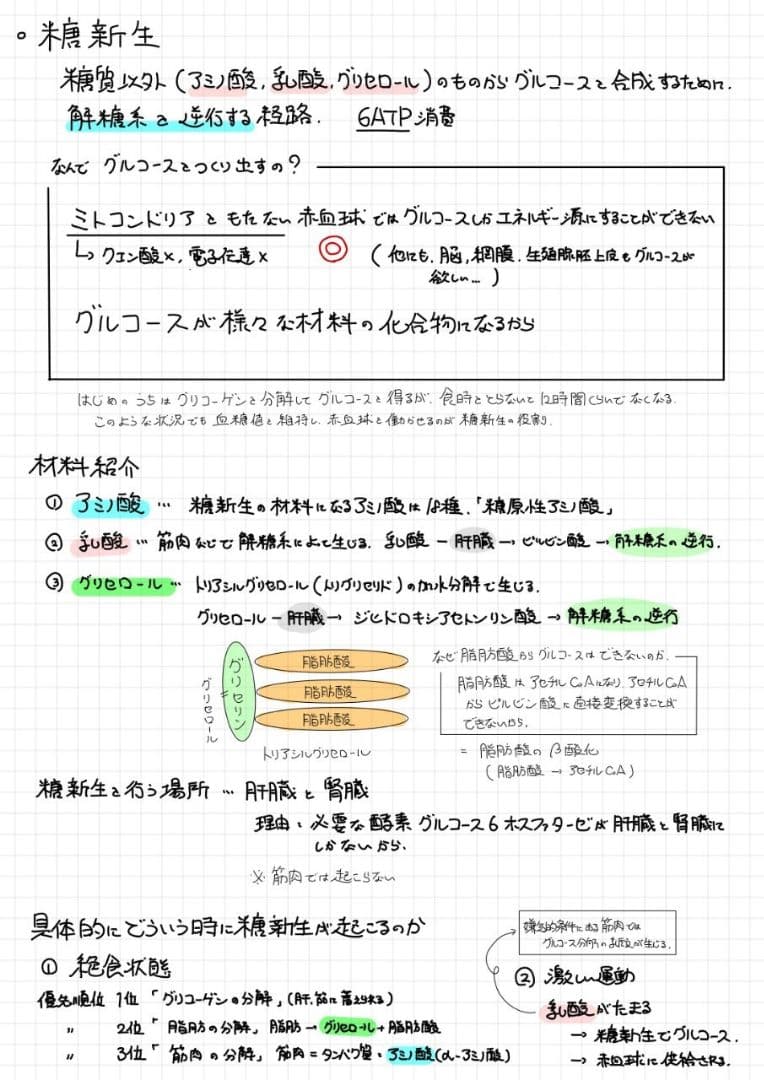 。糖新生
糖質以外(アミノ酸,乳酸,グリセロール)のものからグルコースを合成するために.
解糖系を逆行する経路. 6ATP消費
なんで グルコースをつくり出すの?
ミトコンドリアをもたない赤血球ではグルコースしかエネルギー源にすることができない
↳ クエン酸×, 電子伝達× ◎ (他にも、脳, 網膜. 生殖腺胚上皮もグルコースが
欲しい…)
グルコースが様々な材料の化合物になるから
はじめのうちはグリコーゲンを分解してグルコースを得るが、食時をとらないと12時間くらいでなくなる.
このような状況でも血糖値を維持し、赤血球を働かせるのが糖新生の役割.
材料紹介
① アミノ酸 … 糖新生の材料になるアミノ酸は18種.「糖原性アミノ酸」
② 乳酸 … 筋肉などで解糖系によって生じる. 乳酸 − 肝臓 → ピルビン酸 → 解糖系の逆行.
③ グリセロール … トリアシルグリセロール(トリグリセリド)の加水分解で生じる.
グリセロール − 肝臓 → ジヒドロキシアセトンリン酸 → 解糖系の逆行
グリセロール
=
グリセリン
脂肪酸
脂肪酸
脂肪酸
トリアシルグリセロール
なぜ脂肪酸からグルコースはできないのか.
脂肪酸はアセチルCoAになり、アセチルCoA
からピルビン酸に直接変換することが
できないから.
= 脂肪酸のβ酸化
(脂肪酸 → アセチルCoA)
糖新生を行う場所 … 肝臓と腎臓
理由:必要な酵素グルコース6ホスファターゼが肝臓と腎臓に
しかないから、
※筋肉では起こらない
具体的にどういう時に糖新生が起こるのか
① 絶食状態
優先順位 1位「グリコーゲンの分解」(肝,筋に蓄えられる)
〃 2位「脂肪の分解」脂肪→グリセロール+脂肪酸
〃 3位「筋肉の分解」筋肉=タンパク質・アミノ酸(α-アミノ酸)
嫌気的条件にある筋肉では
グルコース分解の乳酸が生じる.
② 激しい運動
乳酸がたまる
→ 糖新生でグルコース.
→ 赤血球に供給される.